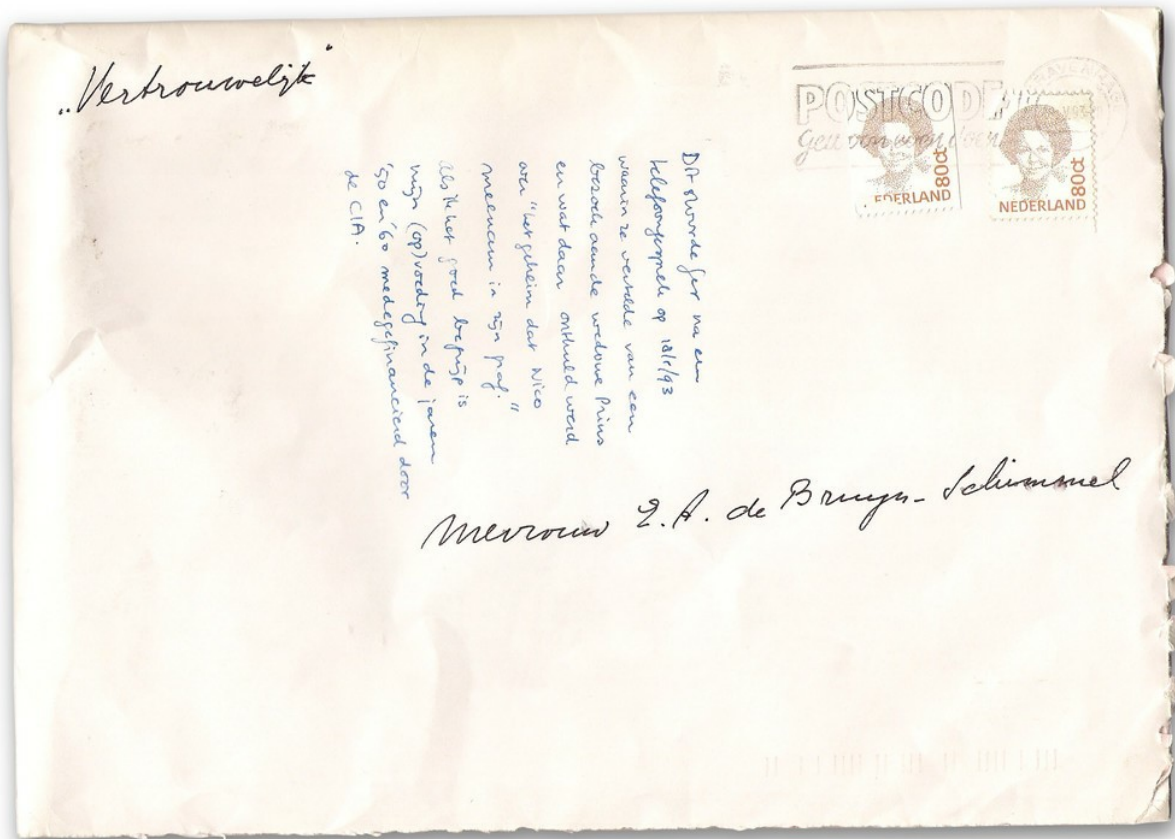 „Vertrouwelijk"
POSTCODE
gewoon even doen
80ct
NEDERLAND
80ct
NEDERLAND
Dit stuurde Ger na een
telefoongesprek op 18/1/93
waarin ze vertelde van een
bezoek aan de weduwe Prins
en wat daar onthuld werd
over "het geheim dat Nico
meenam in zijn graf."
Als ik het goed begrijp is
mijn (op)voeding in de jaren
'50 en '60 medegefinancierd door
de CIA.
Mevrouw E. A. de Bruyn-Schimmel